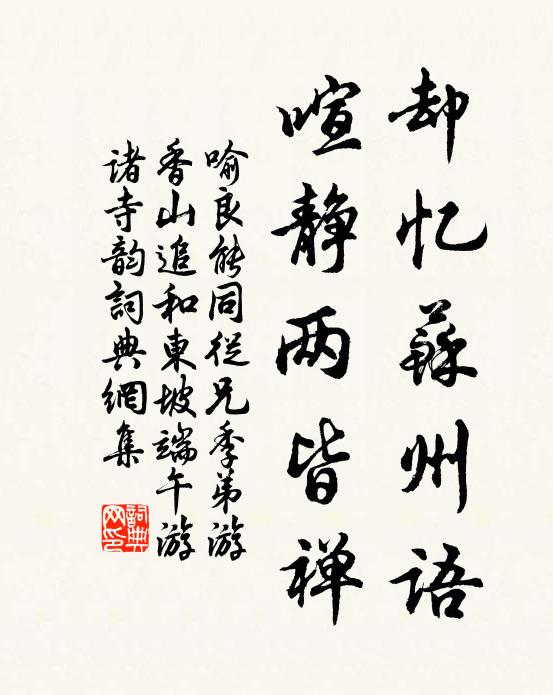 却忆蘇州语
喧静两皆禅
喻良能同從兄季弟游
香山追和東坡端午游
诸寺韵詞典網集
詞典
网印